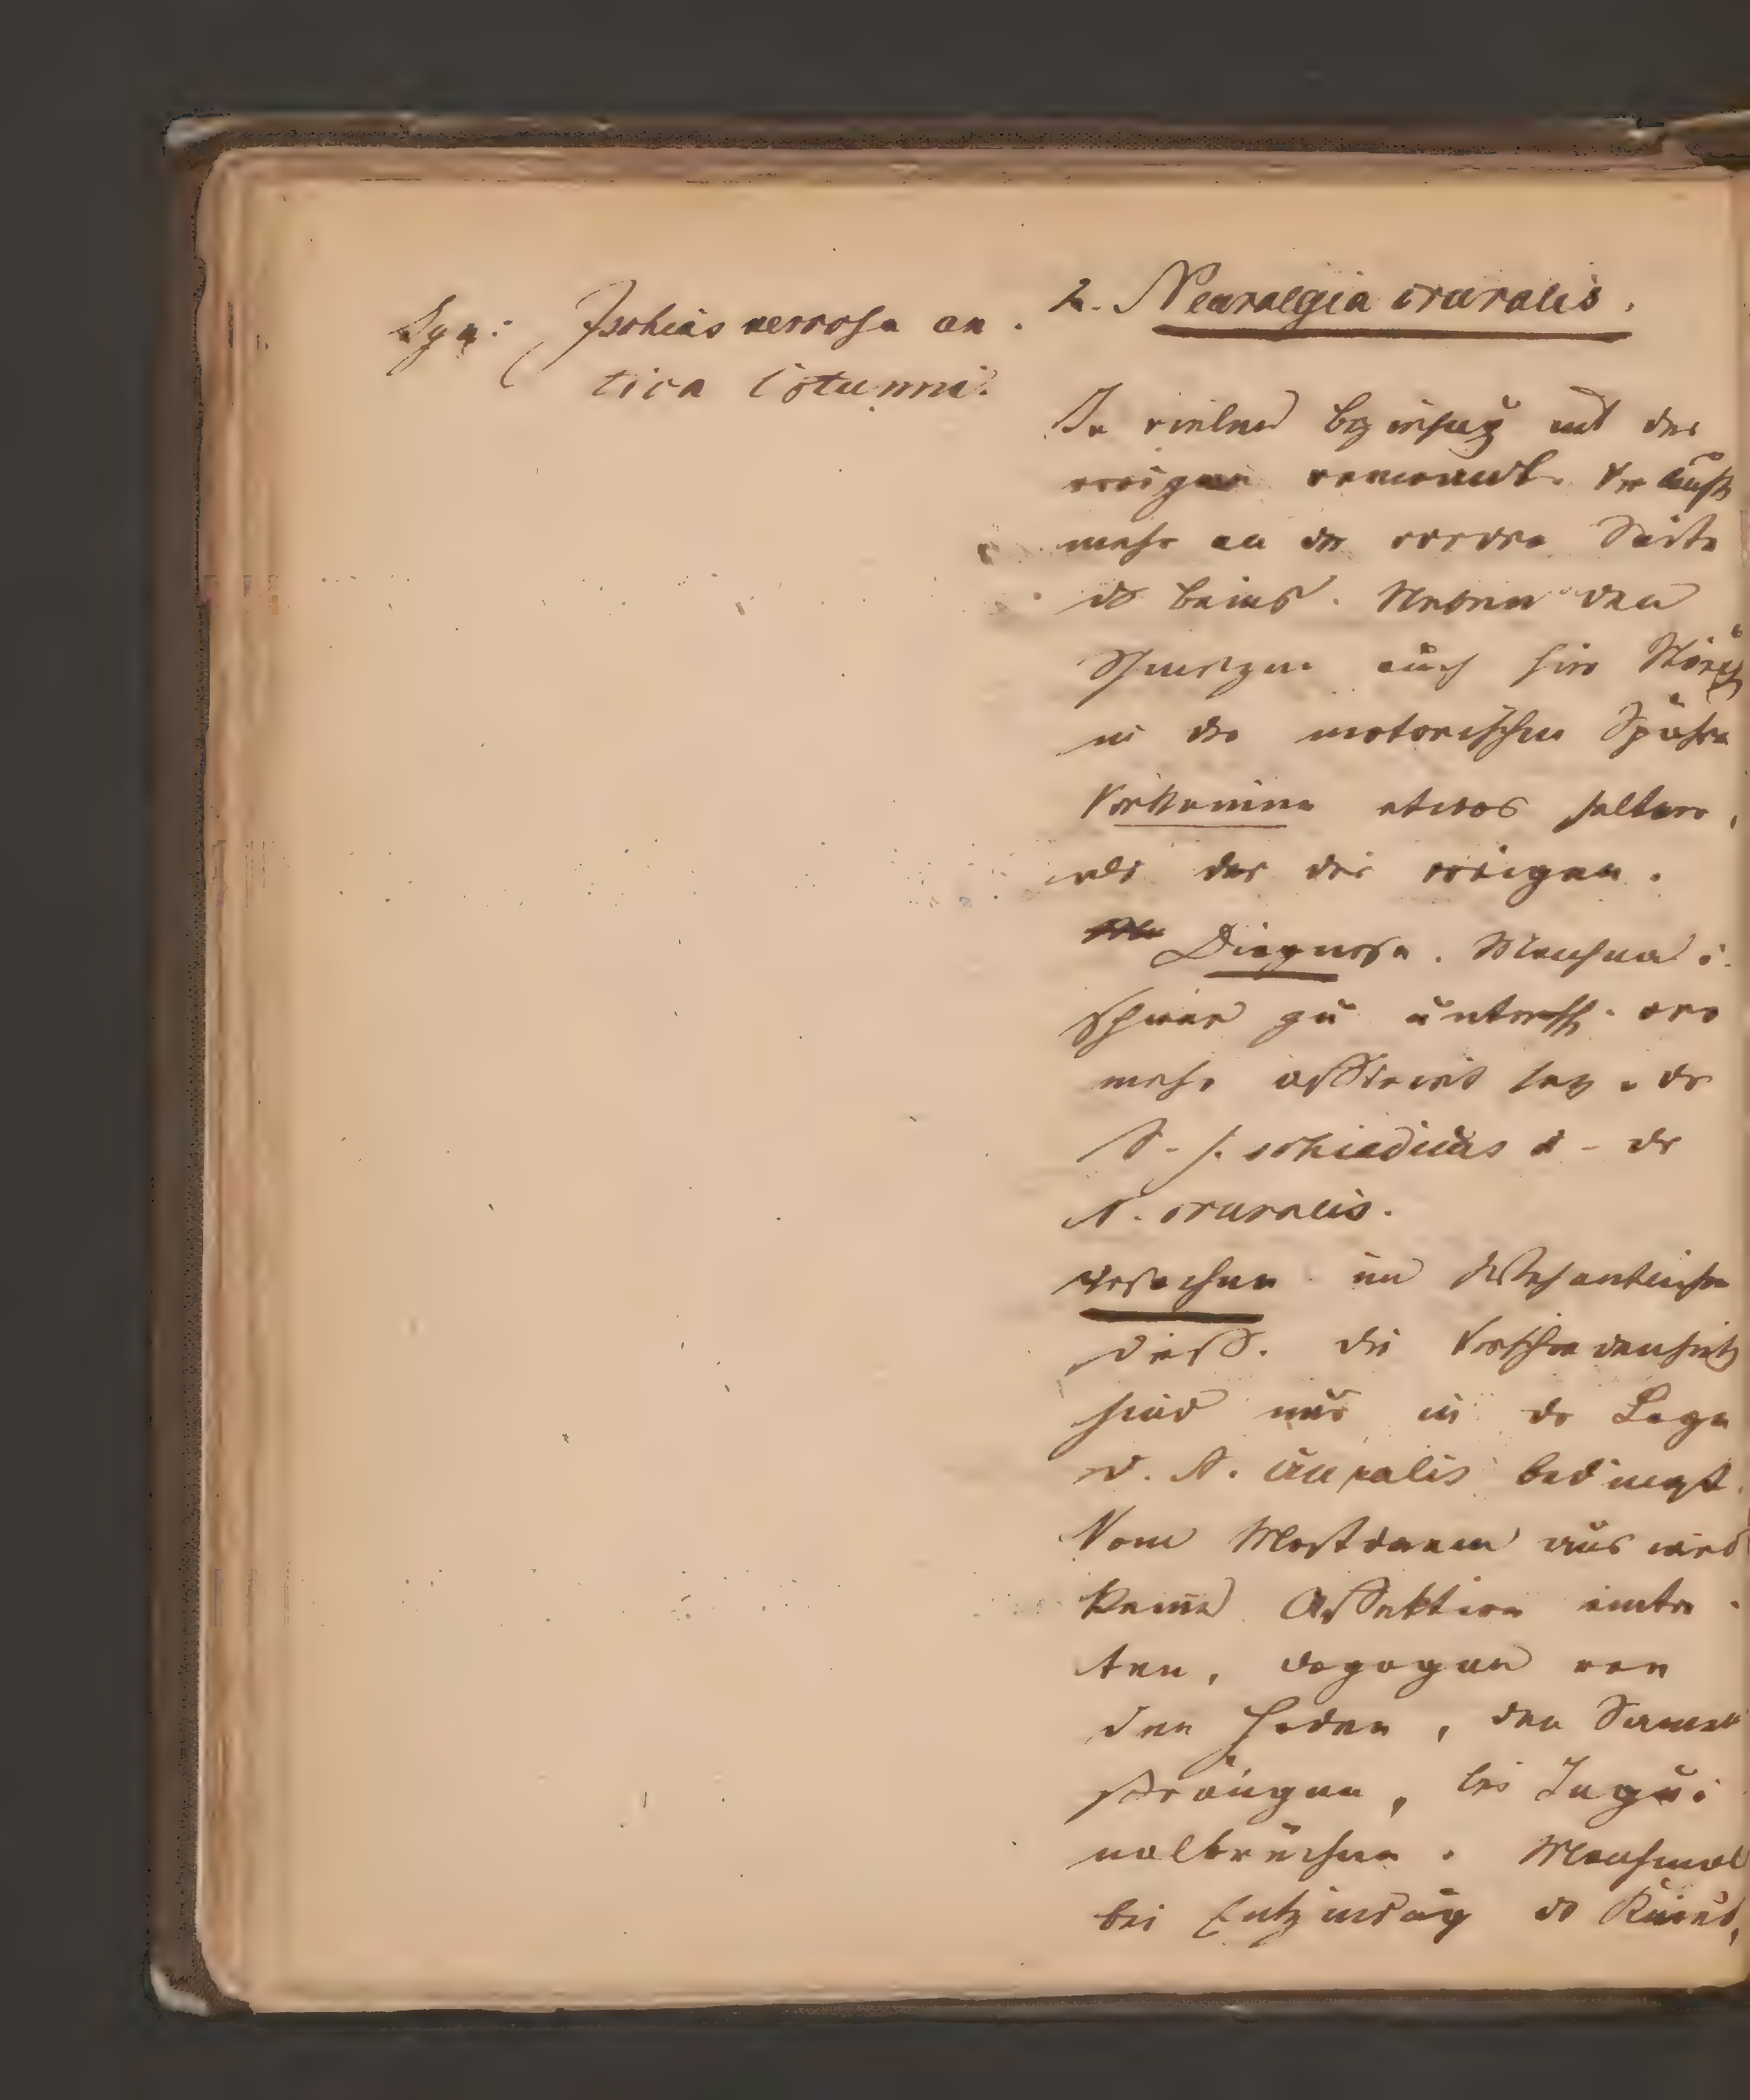 Syn: Ischias nervosa an-
tica Cotunni.
2. Neuralgia cruralis.
In vielen Beziehung mit der
vorigen verwandt. Verläuft
mehr an der vordern Seite
ds Beins. Neben den
Schmerzen auch hier Störung
in der motorischen Sphäre
Vorkommen etwas seltener,
als das der vorigen.
Diagnose. Manchmal i.
schwer zu untersch. wo
mehr afficirt sey. der
N. ischiadicus o. der
N. cruralis.
Ursachen im Wesentlichen
dies. die Verschiedenheit
sind nur in der Lage
d. N. cruralis bedingt.
Vom Mastdarm aus wird
keine Affektion eintre-
ten, dagegen von
den Hoden, den Samen
strängen, bei Ingui
nalbrüchen. Manchmal
bei Entzündung ds Knies,